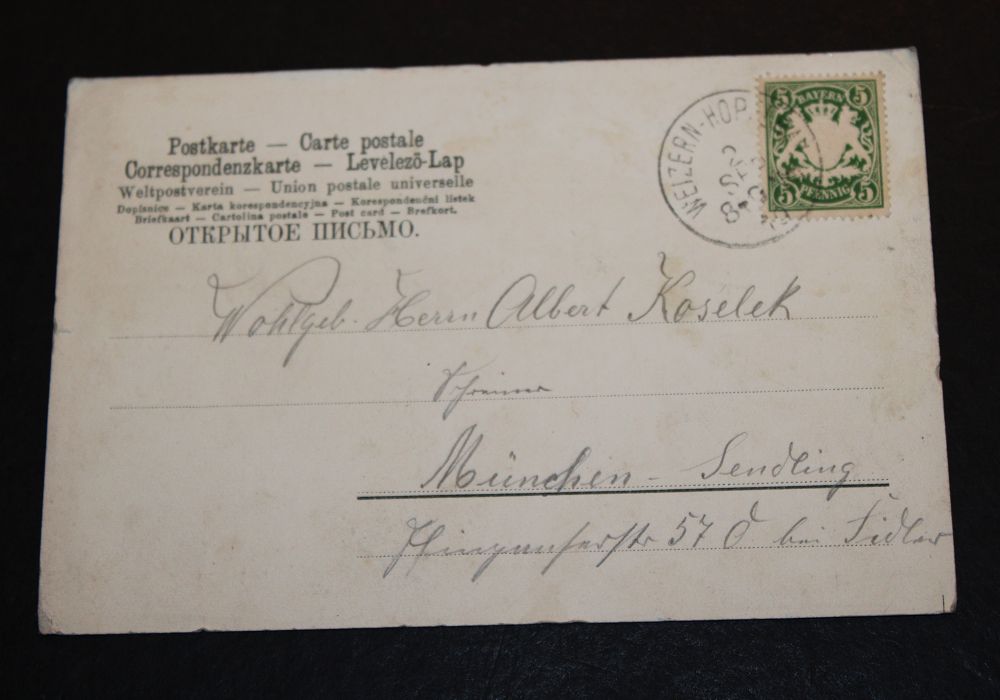 Postkarte — Carte postale
Correspondenzkarte — Levelező-Lap
Weltpostverein — Union postale universelle
Dopisnice — Karta korespondencyjna — Korespondenční listek
Briefkaart — Cartolina postale — Post card — Brefkort.
ОТКРЫТОЕ ПИСЬМО.
WEIZERN-HOP
8 SEP
5 BAYERN 5
5 PFENNIG 5
Wohlgeb. Herrn Albert Koselek
Schreiner
München - Sendling
57 bei Fidler